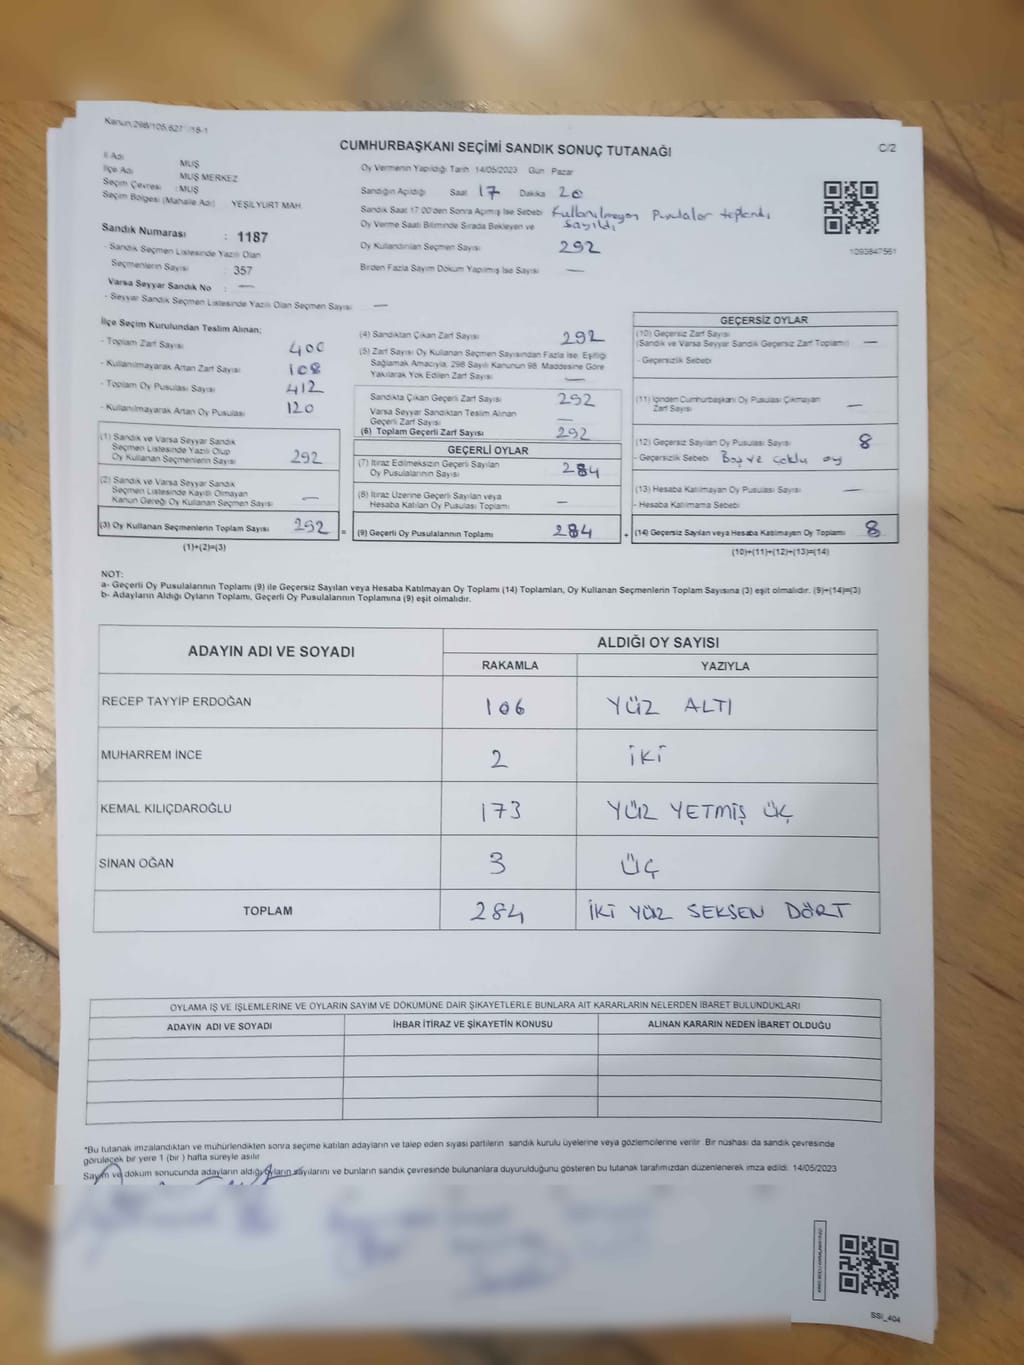 Kanun,298/105,627 /18-1
CUMHURBAŞKANI SEÇİMİ SANDIK SONUÇ TUTANAĞI
C/2
İl Adı MUŞ
İlçe Adı MUŞ MERKEZ
Seçim Çevresi : MUŞ
Seçim Bölgesi (Mahalle Adı) : YEŞİLYURT MAH.
Oy Vermenin Yapıldığı Tarih 14/05/2023 Gün Pazar
Sandığın Açıldığı Saat 17 Dakika 20
Sandık Saat 17.00'den Sonra Açılmış İse Sebebi Kullanılmayan Pusulalar toplandı
sayıldı
Oy Verme Saati Bitiminde Sırada Bekleyen ve
Oy Kullandırılan Seçmen Sayısı 292
Birden Fazla Sayım Döküm Yapılmış İse Sayısı —
1093847561
Sandık Numarası : 1187
- Sandık Seçmen Listesinde Yazılı Olan
Seçmenlerin Sayısı : 357
Varsa Seyyar Sandık No : —
- Seyyar Sandık Seçmen Listesinde Yazılı Olan Seçmen Sayısı : —
İlçe Seçim Kurulundan Teslim Alınan;
- Toplam Zarf Sayısı 400
- Kullanılmayarak Artan Zarf Sayısı 108
- Toplam Oy Pusulası Sayısı 412
- Kullanılmayarak Artan Oy Pusulası 120
(1) Sandık ve Varsa Seyyar Sandık
Seçmen Listesinde Yazılı Olup
Oy Kullanan Seçmenlerin Sayısı 292
(2) Sandık ve Varsa Seyyar Sandık
Seçmen Listesinde Kayıtlı Olmayan
Kanun Gereği Oy Kullanan Seçmen Sayısı —
(3) Oy Kullanan Seçmenlerin Toplam Sayısı 292 =
(1)+(2)=(3)
(4) Sandıktan Çıkan Zarf Sayısı 292
(5) Zarf Sayısı Oy Kullanan Seçmen Sayısından Fazla İse, Eşitliği
Sağlamak Amacıyla, 298 Sayılı Kanunun 98. Maddesine Göre
Yakılarak Yok Edilen Zarf Sayısı —
Sandıkta Çıkan Geçerli Zarf Sayısı 292
Varsa Seyyar Sandıktan Teslim Alınan
Geçerli Zarf Sayısı —
(6) Toplam Geçerli Zarf Sayısı 292
GEÇERLİ OYLAR
(7) İtiraz Edilmeksizin Geçerli Sayılan
Oy Pusulalarının Sayısı 284
(8) İtiraz Üzerine Geçerli Sayılan veya
Hesaba Katılan Oy Pusulası Toplamı —
(9) Geçerli Oy Pusulalarının Toplamı 284 +
GEÇERSİZ OYLAR
(10) Geçersiz Zarf Sayısı
(Sandık ve Varsa Seyyar Sandık Geçersiz Zarf Toplamı) —
- Geçersizlik Sebebi
(11) İçinden Cumhurbaşkanı Oy Pusulası Çıkmayan
Zarf Sayısı —
(12) Geçersiz Sayılan Oy Pusulası Sayısı 8
- Geçersizlik Sebebi Boş ve çoklu oy
(13) Hesaba Katılmayan Oy Pusulası Sayısı —
- Hesaba Katılmama Sebebi
(14) Geçersiz Sayılan veya Hesaba Katılmayan Oy Toplamı 8
(10)+(11)+(12)+(13)=(14)
NOT:
a- Geçerli Oy Pusulalarının Toplamı (9) ile Geçersiz Sayılan veya Hesaba Katılmayan Oy Toplamı (14) Toplamları, Oy Kullanan Seçmenlerin Toplam Sayısına (3) eşit olmalıdır. (9)+(14)=(3)
b- Adayların Aldığı Oyların Toplamı, Geçerli Oy Pusulalarının Toplamına (9) eşit olmalıdır.
ADAYIN ADI VE SOYADI
ALDIĞI OY SAYISI
RAKAMLA YAZIYLA
RECEP TAYYİP ERDOĞAN 106 YÜZ ALTI
MUHARREM İNCE 2 İKİ
KEMAL KILIÇDAROĞLU 173 YÜZ YETMİŞ ÜÇ
SİNAN OĞAN 3 ÜÇ
TOPLAM 284 İKİ YÜZ SEKSEN DÖRT
OYLAMA İŞ VE İŞLEMLERİNE VE OYLARIN SAYIM VE DÖKÜMÜNE DAİR ŞİKAYETLERLE BUNLARA AİT KARARLARIN NELERDEN İBARET BULUNDUKLARI
ADAYIN ADI VE SOYADI İHBAR İTİRAZ VE ŞİKAYETİN KONUSU ALINAN KARARIN NEDEN İBARET OLDUĞU
*Bu tutanak imzalandıktan ve mühürlendikten sonra seçime katılan adayların ve talep eden siyasi partilerin sandık kurulu üyelerine veya gözlemcilerine verilir. Bir nüshası da sandık çevresinde
görülecek bir yere 1 (bir) hafta süreyle asılır.
Sayım ve döküm sonucunda adayların aldığı oyların sayılarını ve bunların sandık çevresinde bulunanlara duyurulduğunu gösteren bu tutanak tarafımızdan düzenlenerek imza edildi. 14/05/2023
SSİ_404